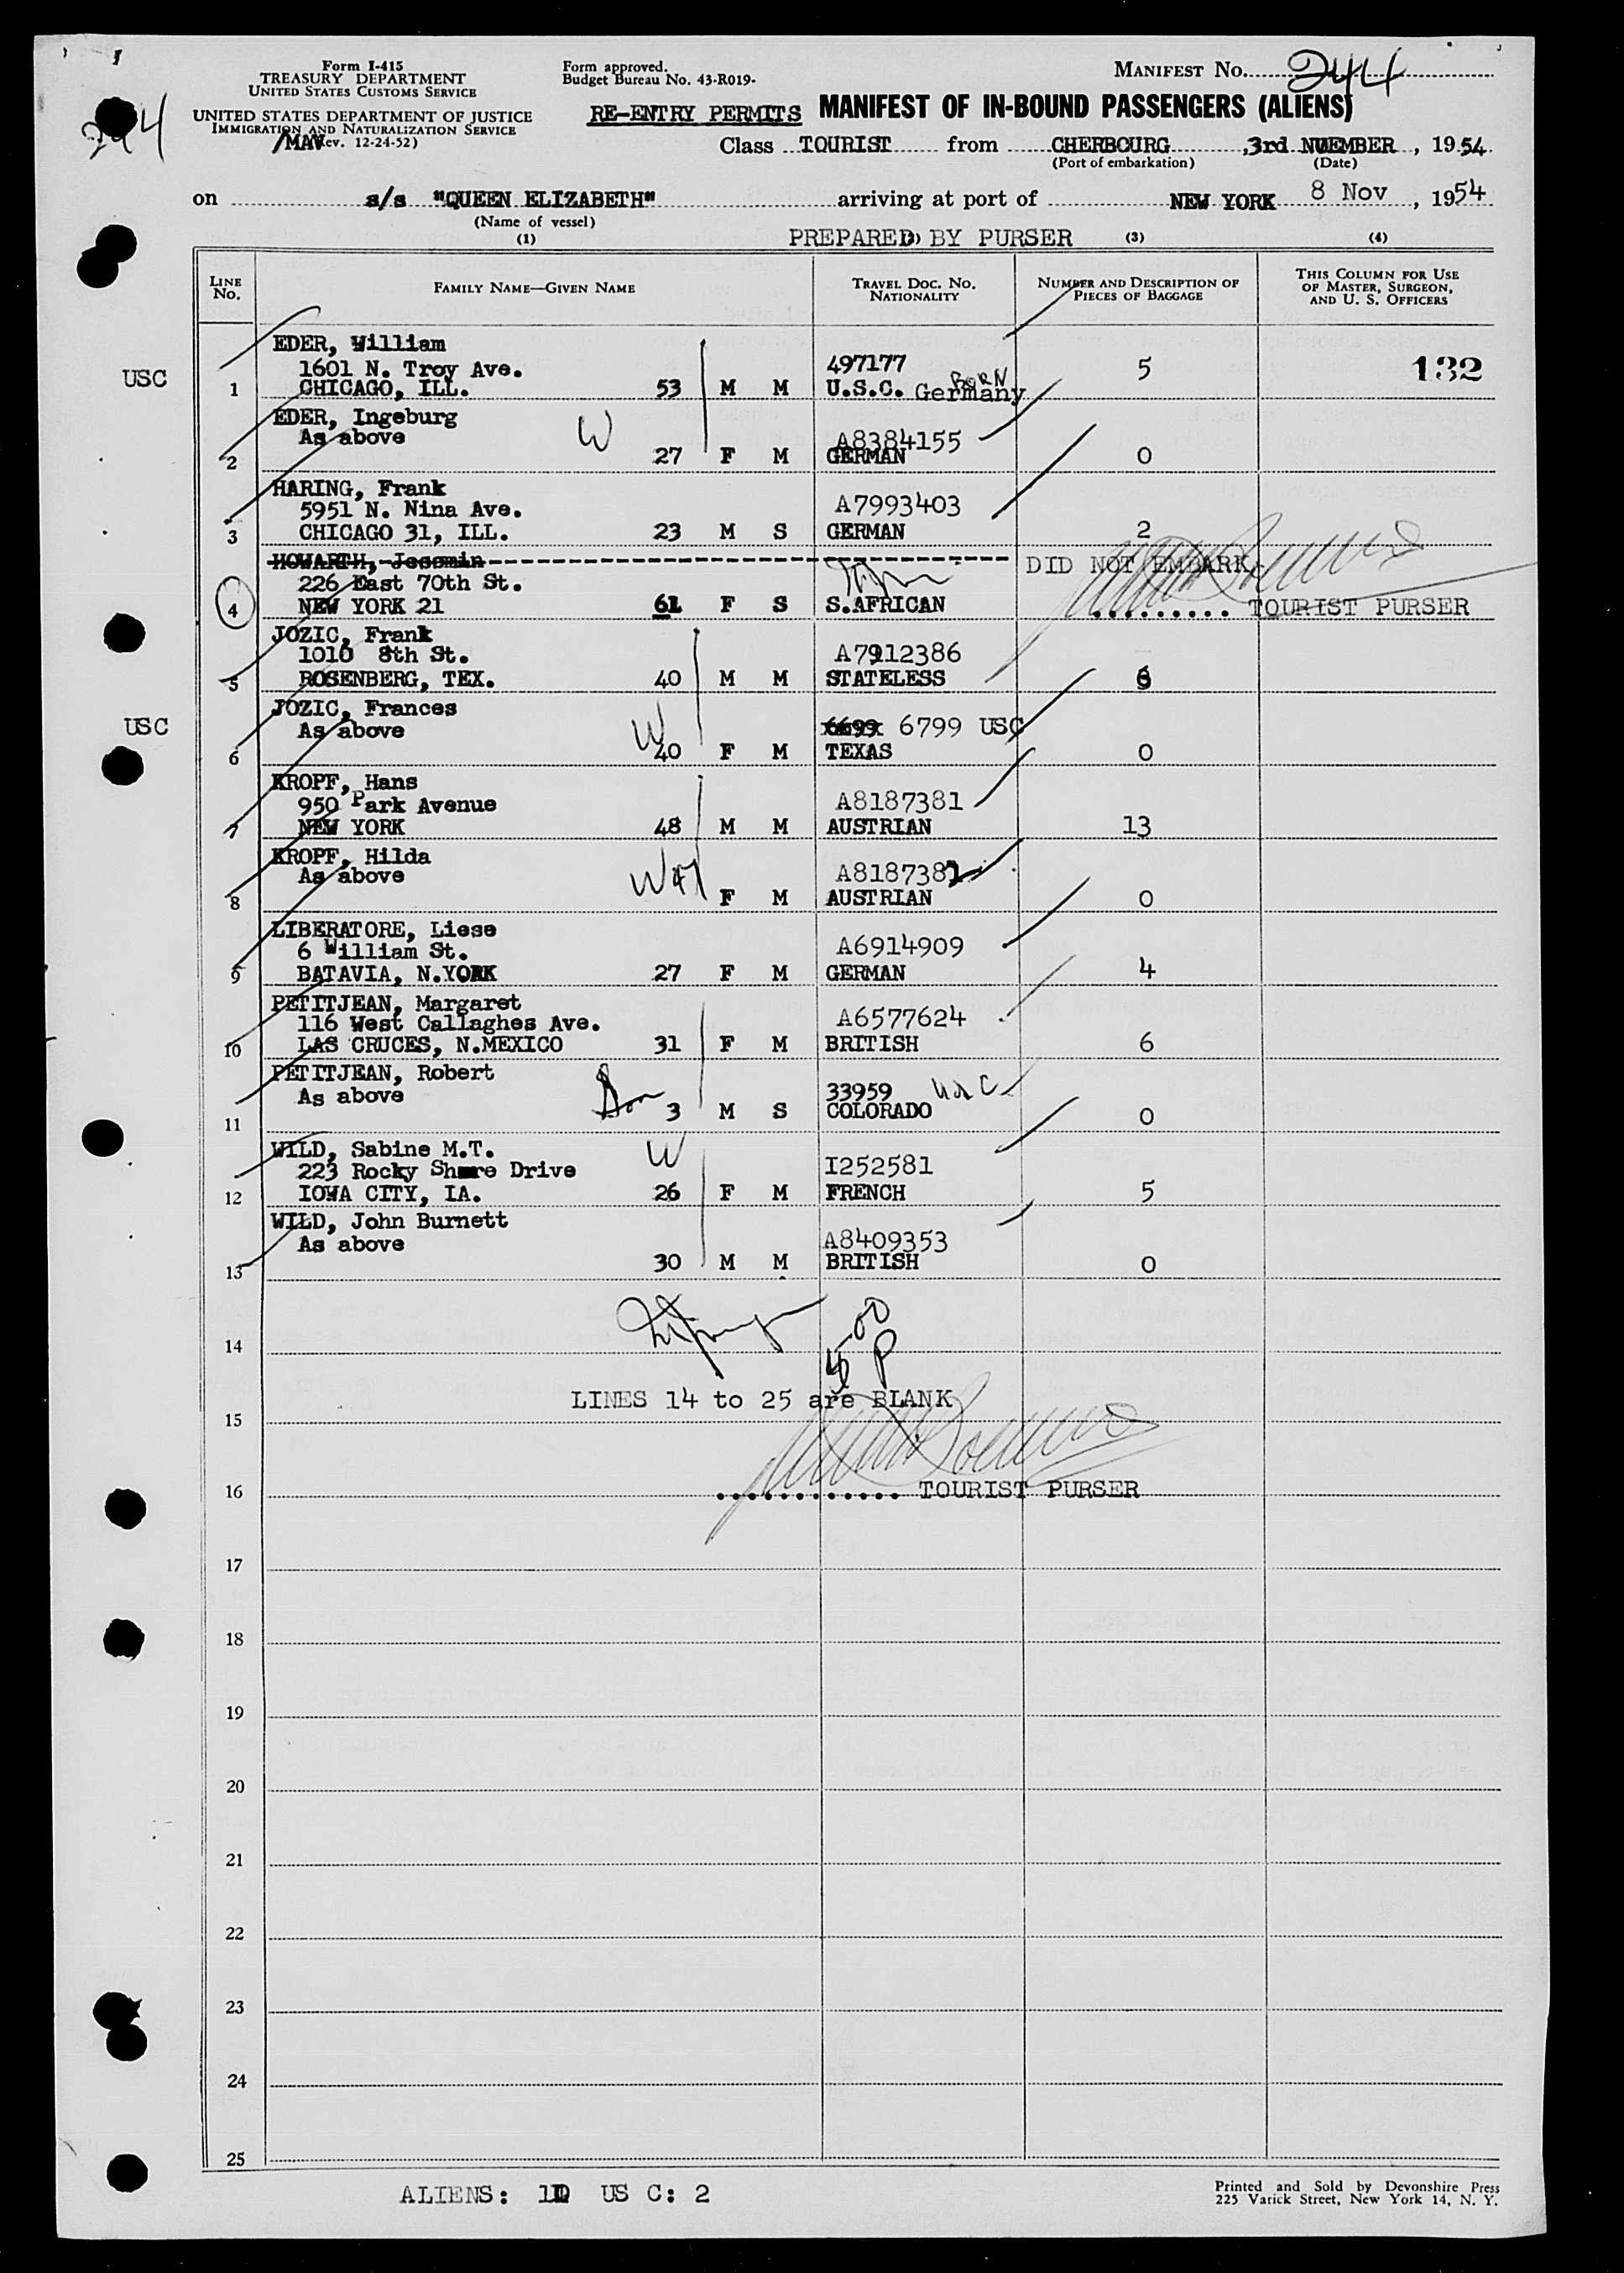 Form I-415
TREASURY DEPARTMENT
UNITED STATES CUSTOMS SERVICE
UNITED STATES DEPARTMENT OF JUSTICE
IMMIGRATION AND NATURALIZATION SERVICE
(Rev. 12-24-52)
Form approved.
Budget Bureau No. 43-R019-
MANIFEST No. 244
294
RE-ENTRY PERMITS MANIFEST OF IN-BOUND PASSENGERS (ALIENS)
Class TOURIST from CHERBOURG, 3rd NOVEMBER, 1954
(Port of embarkation) (Date)
on s/s "QUEEN ELIZABETH" arriving at port of NEW YORK 8 Nov, 1954
(Name of vessel)
(1) PREPARED BY PURSER (3) (4)
LINE No. FAMILY NAME—GIVEN NAME TRAVEL DOC. No. NATIONALITY NUMBER AND DESCRIPTION OF PIECES OF BAGGAGE THIS COLUMN FOR USE OF MASTER, SURGEON, AND U. S. OFFICERS
EDER, William
1601 N. Troy Ave. 497177 5 132
USC 1 CHICAGO, ILL. 53 M M U.S.C. BORN Germany
EDER, Ingeburg
As above W A8384155
2 27 F M GERMAN 0
HARING, Frank
5951 N. Nina Ave. A7993403
3 CHICAGO 31, ILL. 23 M S GERMAN 2
HOWARTH, Jessmin DID NOT EMBARK
226 East 70th St.
4 NEW YORK 21 61 F S S.AFRICAN TOURIST PURSER
JOZIC, Frank
1010 8th St. A7912386
5 ROSENBERG, TEX. 40 M M STATELESS 6
JOZIC, Frances
USC As above W 6699 6799 USC
6 40 F M TEXAS 0
KROPF, Hans
950 Park Avenue A8187381
7 NEW YORK 48 M M AUSTRIAN 13
KROPF, Hilda
As above W 47 A8187382
8 F M AUSTRIAN 0
LIBERATORE, Liese
6 William St. A6914909
9 BATAVIA, N.YORK 27 F M GERMAN 4
PETITJEAN, Margaret
116 West Callaghes Ave. A6577624
10 LAS CRUCES, N.MEXICO 31 F M BRITISH 6
PETITJEAN, Robert
As above Son 33959 USC
11 3 M S COLORADO 0
WILD, Sabine M.T. W
223 Rocky Shore Drive I252581
12 IOWA CITY, IA. 26 F M FRENCH 5
WILD, John Burnett
As above A8409353
13 30 M M BRITISH 0
14
LINES 14 to 25 are BLANK
15
16 TOURIST PURSER
17
18
19
20
21
22
23
24
25
ALIENS: 10 US C: 2
Printed and Sold by Devonshire Press
225 Varick Street, New York 14, N. Y.